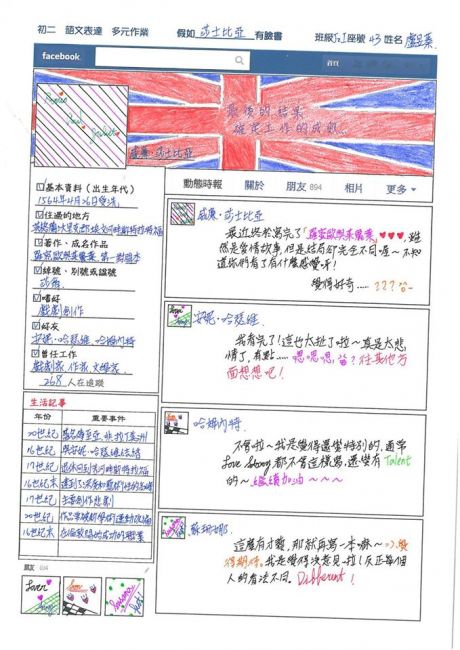 初二 語文表達 多元作業 假如 莎士比亞 有臉書 班級 座號 43 姓名
facebook. 首頁
Romeo
and
Juliet
最後的結果
確定工作的成敗...
威廉·莎士比亞
動態時報 關於 朋友 894 相片 更多
基本資料（出生年代）
1564年4月26日受洗
住過的地方
著作、成名作品
羅密歐與茱麗葉、第一對開本
綽號、別號或諡號
嗜好
戲劇創作
好友
安妮·哈瑟維、哈姆內特
曾任工作
戲劇家、作家、文學家
268 人在追蹤
威廉·莎士比亞
最近興於寫完了「羅密歐與茱麗葉」♥♥♥，雖
然是愛情故事，但是結局卻完全不同喔～不知
道你們看了有什麼感覺呀！
覺得好奇……???
安妮·哈瑟維
我看完了！這也太扯了啦～真是大悲
情了，有點……嗯嗯嗯，往其他方
面想想吧！
哈姆內特
不會啦～我是覺得還蠻特別的，通常
Love Story都不會這樣寫，還蠻有Talent
的～繼續加油～～～
蘇珊娜
這麼有才華，那就再寫一本嘛～
得期待。我是覺得沒意見啦！反正每個
人的看法不同。Different!
生活記事
年份 重要事件
20世紀
16世紀 與安妮·哈瑟維結婚
17世紀
16世紀末
17世紀 主要創作悲劇
20世紀
16世紀末
朋友 894
Lover